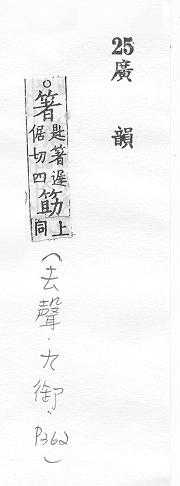 25廣韻
○箸匙箸遟倨切四筯上同
(去聲.九御.P362)